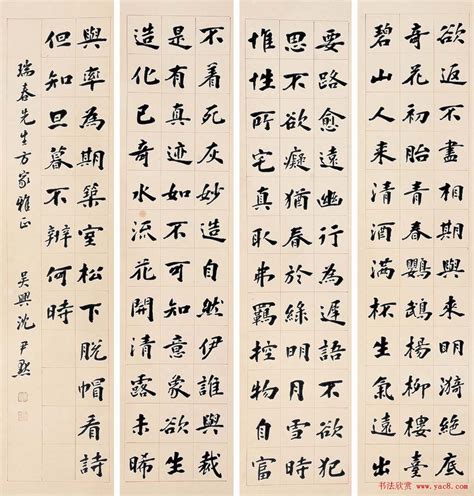 欲返不盡相期與來明漪絕底
奇花初胎青春鸚鵡楊柳樓臺
碧山人來清酒滿杯生氣遠出
要路愈遠幽行為遲語不欲犯
思不欲癡猶春於綠明月雪時
惟性所宅真取弗羈控物自富
不着死灰妙造自然伊誰與裁
是有真迹如不可知意象欲生
造化已奇水流花開清露未晞
與率為期築室松下脫帽看詩
但知旦暮不辨何時
瑞春先生方家雅正 吳興沈尹默
书法欣赏 www.yac8.com